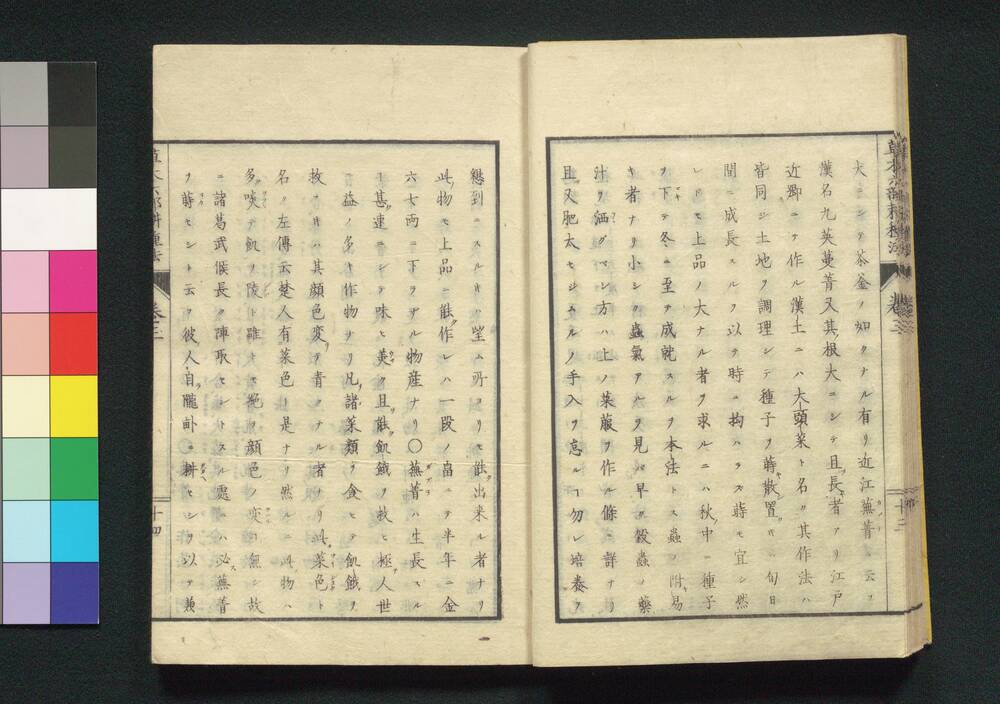 大ニシテ茶釜ノ如クナル有リ近江蕪菁ト云フ
漢名九英蔓菁又其根大ニシテ且長キ者アリ江戸
近郷ニテ作ル漢土ニハ大頭菜ト名ク其作法ハ
皆同ジ土地ヲ調理シテ種子ヲ蒔散置ハ旬日
間ニ成長スルヲ以テ時ニ拘ハラズ蒔モ宜シ然
レドモ上品ノ大ナル者ヲ求ルニハ秋中ニ種子
ヲ下テ冬ニ至テ成就スルヲ本法トス蟲ノ附易
キ者ナリ小シク蟲氣アルヲ見バ早ク殺蟲ノ藥
汁ヲ洒グベシ方ハ上ノ萊菔ヲ作ル條ニ詳ナリ
且又肥太セシムルノ手入ヲ怠ルコト勿レ培養ヲ
懇到ニスルトキハ望ム所ヨリモ能出来ル者ナリ
此物モ上品ニ能作レハ一段ノ畠ニテ半年ニ金
六七両ニ下ラザル物産ナリ〇蕪菁ハ生長スル
ト甚速ニシテ味モ美ク且能飢餓ヲ救ヒ極人世
ニ益ノ多キ作物ナリ凡諸菜類ヲ食シテ飢餓ヲ
救フトキハ其顔色変ジテ青クナル者ナリ此菜色ト
名ク左傳云楚人有菜色ト是ナリ然ルニ此物ハ
多ク啖テ飢ヲ陵ト雖モ絶テ顔色ノ変コト無シ故
ニ諸葛武侯長ク陣取セントスル處ニハ必ス蕪菁
ヲ蒔セシト云フ彼人自隴畝ニ耕セシヲ以テ兼